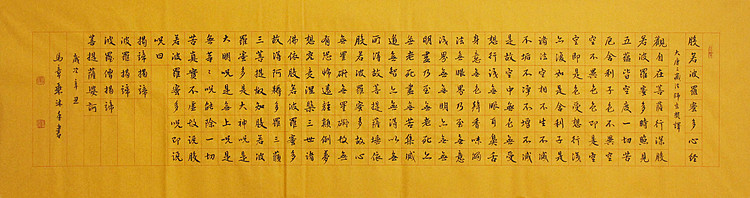 般若波羅蜜多心經
大唐三藏法師玄奘譯
觀自在菩薩行深般
若波羅蜜多時照見
五蘊皆空度一切苦
厄舍利子色不異空
空不異色色即是空
空即是色受想行識
亦復如是舍利子是
諸法空相不生不滅
不垢不淨不增不減
是故空中無色無受
想行識無眼耳鼻舌
身意無色聲香味觸
法無眼界乃至無意
識界無無明亦無無
明盡乃至無老死亦
無老死盡無苦集滅
道無智亦無得以無
所得故菩提薩埵依
般若波羅蜜多故心
無罣礙無罣礙故無
有恐怖遠離顛倒夢
想究竟涅槃三世諸
佛依般若波羅蜜多
故得阿耨多羅三藐
三菩提故知般若波
羅蜜多是大神咒是
大明咒是無上咒是
無等等咒能除一切
苦真實不虛故說般
若波羅蜜多咒即說
咒曰
揭諦揭諦
波羅揭諦
波羅僧揭諦
菩提薩婆訶
歲次辛丑
馬章東沐手書